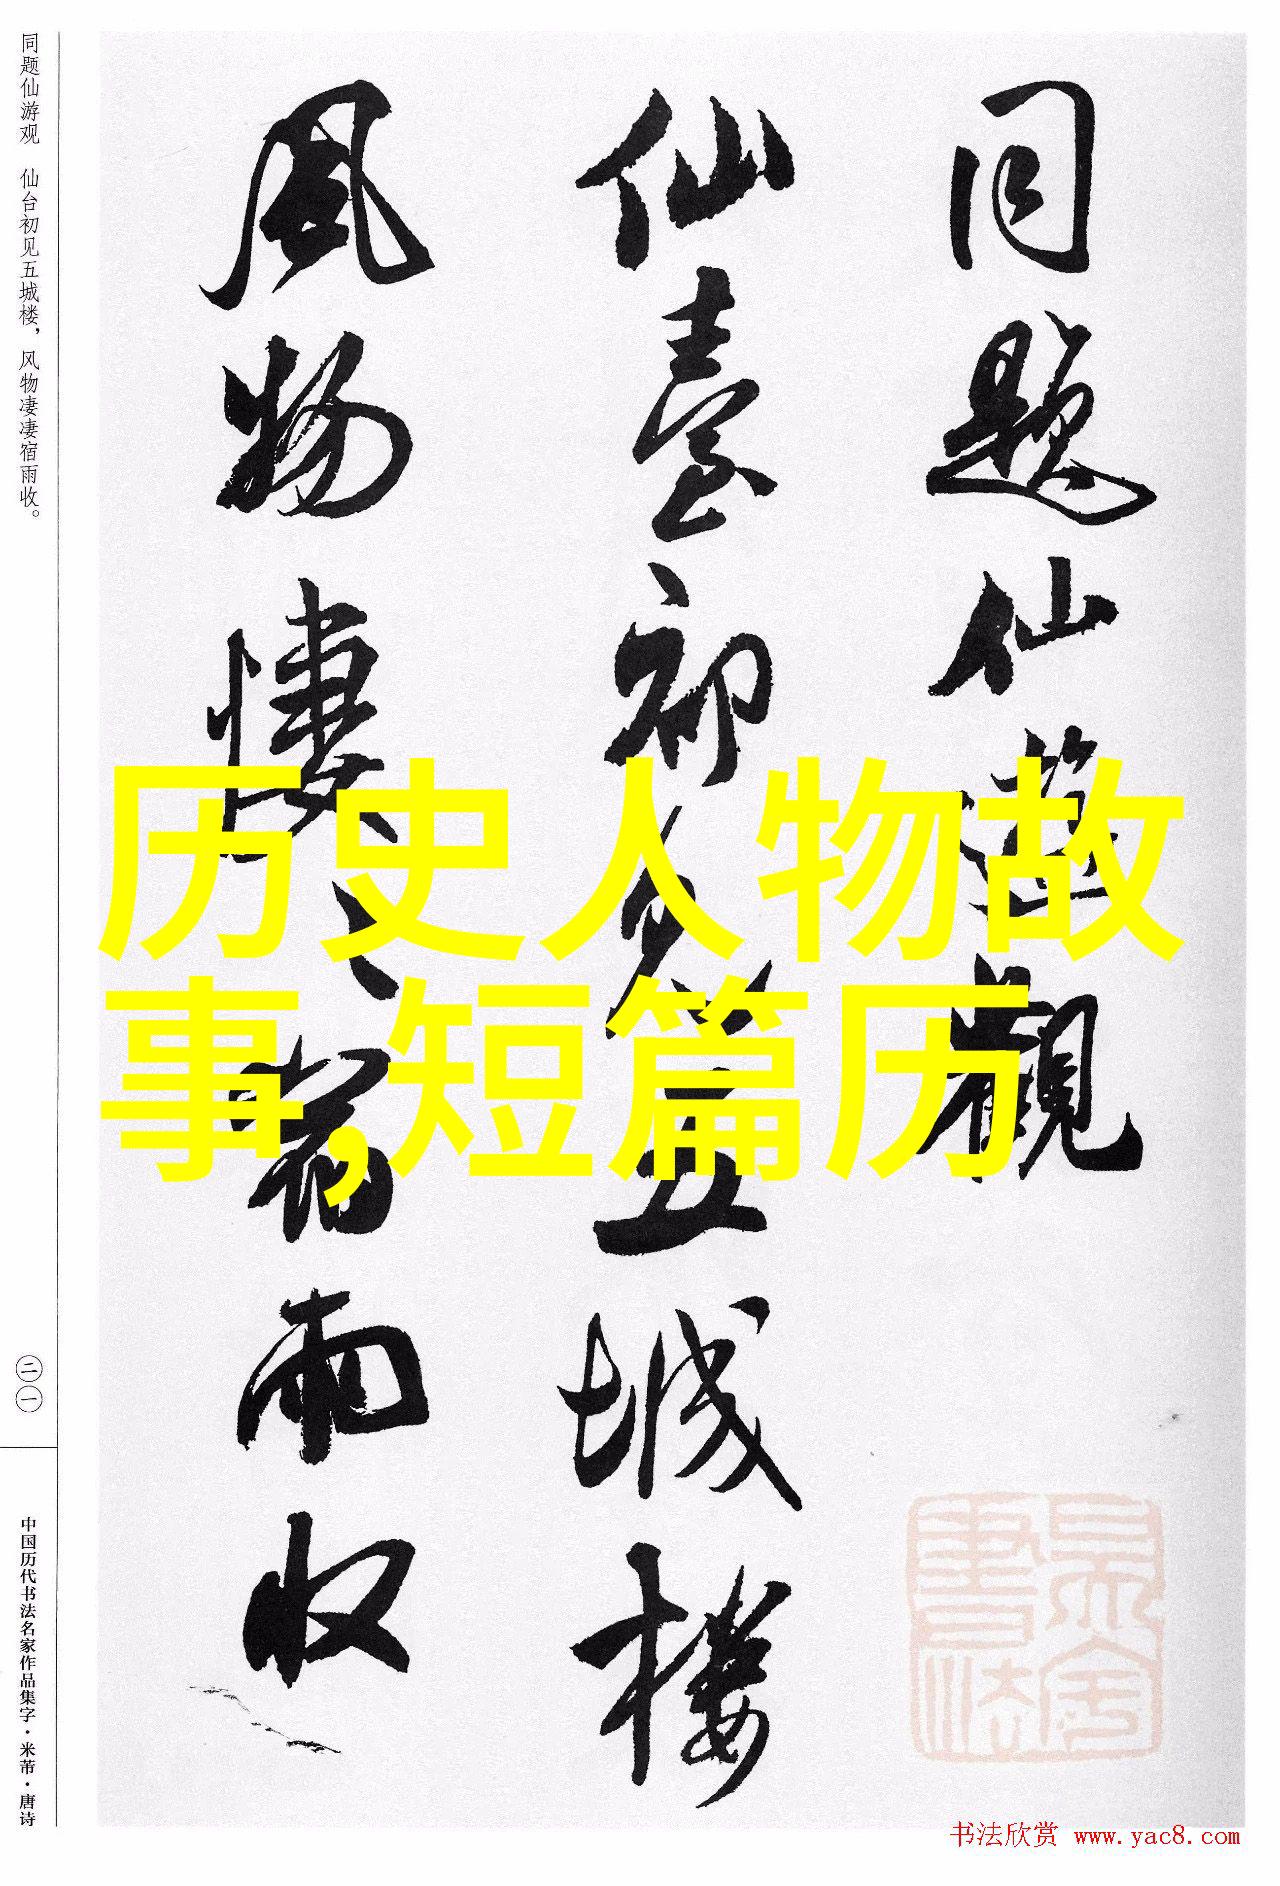 同题仙游观 仙台初见五城楼，风物凄凄宿雨收。
同题仙遊觀
仙臺初見五城樓
風物悽〻宿雨收
历史人物故
事,短篇历
二一
中国历代书法名家作品集字·米芾·唐诗
书法欣赏 www.yac8.com